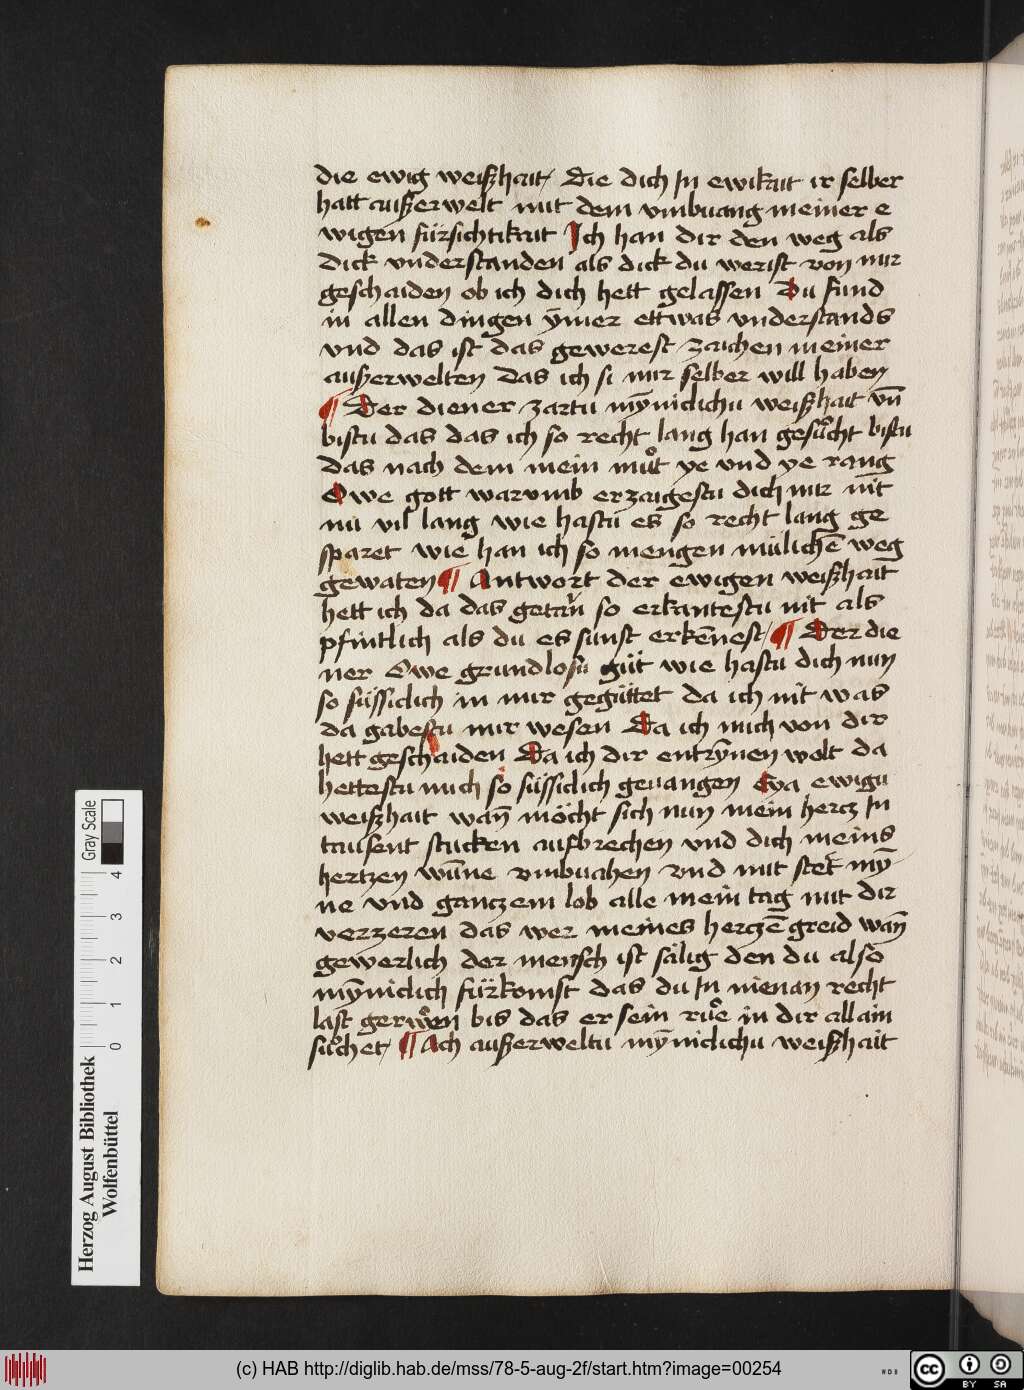 die ewig weißhait / Die dich In ewikait ir selber
hatt außerwelt mit dem vmbuang meiner e
wigen fürsichtikait Ich han dir den weg als
dick vnderstanden als dick du werist von mir
geschaiden ob ich dich hett gelassen Du fund
in allen dingen ÿmer ettwas vnderstands
vnd das ist das gewerest zaichen meiner
außerwelten Das ich si mir selber will haben
¶ Der diener zartu mÿniclichu weißhait vn̄
bistu das das ich so recht lang han gesuͦcht bistu
das nach dem mein muͦt ye vnd ye rang
Owe gott warvmb erzaigestu dich mir nit
nu vil lang wie hastu es so recht lang ge
sparet wie han ich so mengen mülichē weg
gewaten ¶ Antwort der ewigen weißhait
hett ich da das getan so erkantestu nit als
pfintlich als du es sunst erkēnest / ¶ Der die
ner Owe grundlosu güt wie hastu dich nun
so süssiclich in mir gegüttet da ich nit was
da gabestu mir wesen Da ich mich von dir
hett geschaiden Da ich dir entrȳnen wolt da
hettestu mich so süssiclich geuangen Eya ewigu
weißhait wan̄ möcht sich nun mein hercz In
tausent stucken aufbrechen vnd dich meins
hertzen wūne vmbuahen vnd mit stet mȳ
ne vnd ganczem lob alle mein tag mit dir
verzeren das wer meines herczē greid wan̄
gewerlich der mensch ist sälig den du also
mȳniclich fürkomst das du In nienan recht
last geruͦwen bis das er sein ruͦe in dir allain
suͦchet / ¶ Ach außerweltu mȳniclichu weißhait
Herzog August Bibliothek
Wolfenbüttel
0 1 2 3 4
Gray Scale
(c) HAB http://diglib.hab.de/mss/78-5-aug-2f/start.htm?image=00254
WDB
cc BY SA